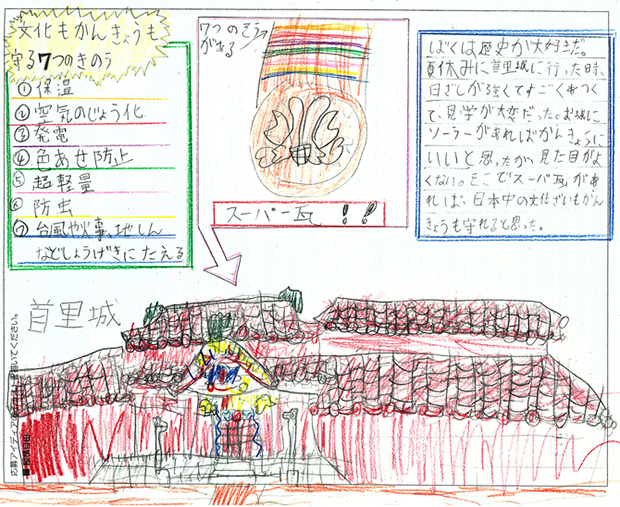 文化もかんきょうも
守る7つのきのう
①保温
②空気のじょう化
③発電
④色あせ防止
⑤超軽量
⑥防虫
⑦台風や火事、地しん
などしょうげきにたえる
7つのそう
がある
スーパー瓦!!
ぼくは歴史が大好きだ。
夏休みに首里城に行った時、
日ざしが強くてすごくあつく
て、見学が大変だった。お城に
ソーラーがあればかんきょうに
いいと思ったが、見た目がよ
くない。そこでスーパー瓦があ
れば、日本中の文化ざいもかん
きょうも守れると思った。
首里城